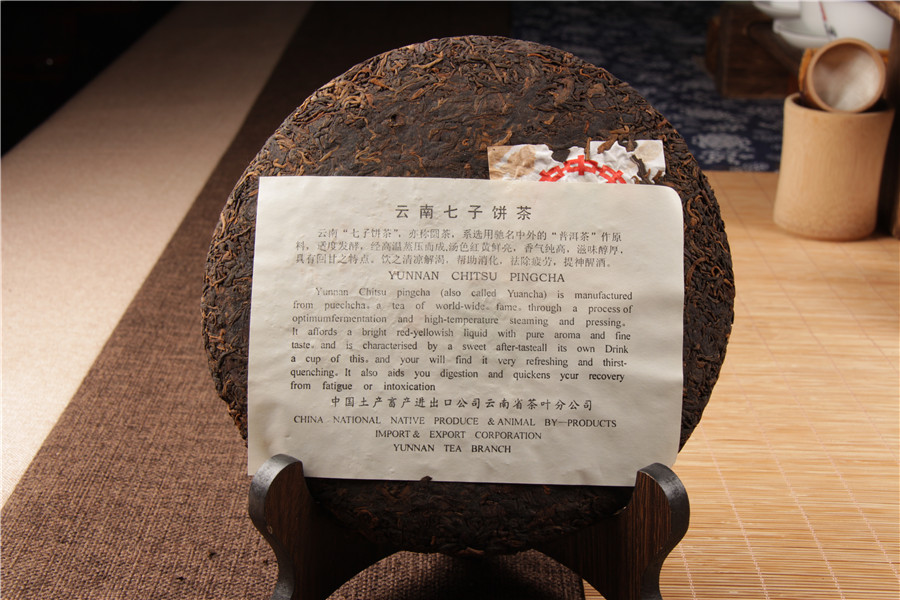 云南七子饼茶
云南“七子饼茶”，亦称圆茶，系选用驰名中外的“普洱茶”作原
料，适度发酵，经高温蒸压而成，汤色红黄鲜亮，香气纯高，滋味醇厚，
具有回甘之特点，饮之清凉解渴，帮助消化，祛除疲劳，提神醒酒。
YUNNAN CHITSU PINGCHA
Yunnan Chitsu pingcha (also called Yuancha) is manufactured
from puechcha。a tea of world-wide。fame。through a process of
optimumfermentation and high-temperature steaming and pressing。
It affords a bright red-yellowish liquid with pure aroma and fine
taste。and is characterised by a sweet after-tasteall its own Drink
a cup of this。and your will find it very refreshing and thirst-
quenching。It also aids you digestion and quickens your recovery
from fatigue or intoxication
中国土产畜产进出口公司云南省茶叶分公司
CHINA NATIONAL NATIVE PRODUCE & ANIMAL BY—PRODUCTS
IMPORT & EXPORT CORPORATION
YUNNAN TEA BRANCH